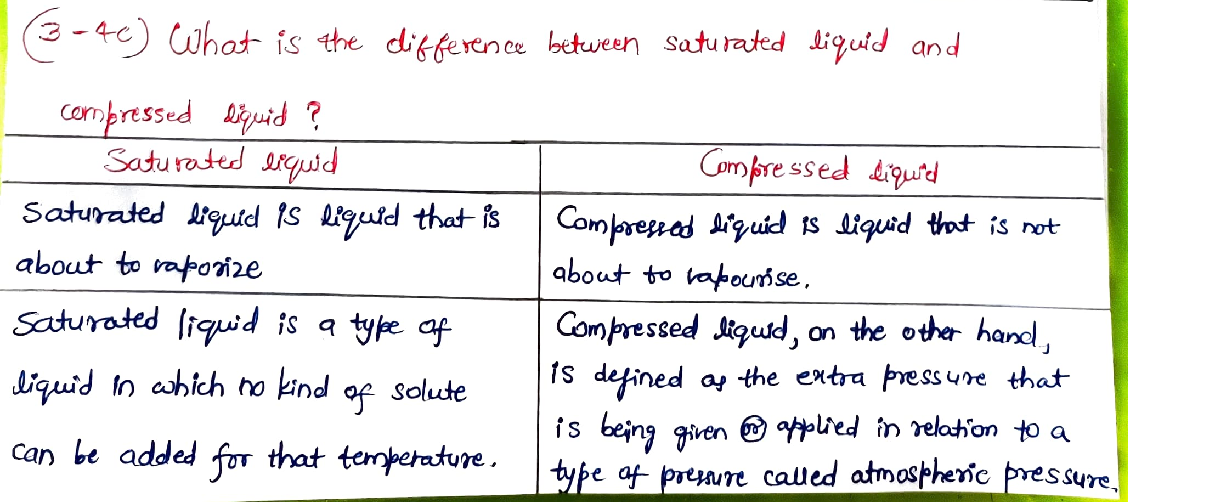 (3-4c) What is the difference between saturated liquid and
compressed liquid ?
Saturated liquid
Compressed liquid
Saturated liquid is liquid that is
about to vaporize
Compressed liquid is liquid that is not
about to vapourise.
Saturated liquid is a type of
liquid in which no kind of solute
can be added for that temperature.
Compressed liquid, on the other hand,
is defined as the extra pressure that
is being given or applied in relation to a
type of pressure called atmospheric pressure.